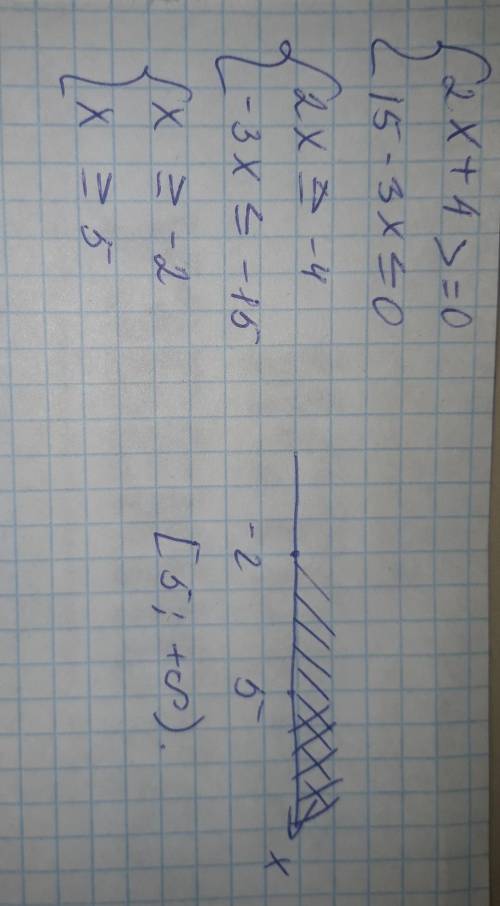 { 2x + 4 >= 0
{ 15 - 3x ≤ 0
{ 2x ≥ -4
{ -3x ≤ -15
{ x ≥ -2
{ x ≥ 5
-2 5 x
[5; +∞).